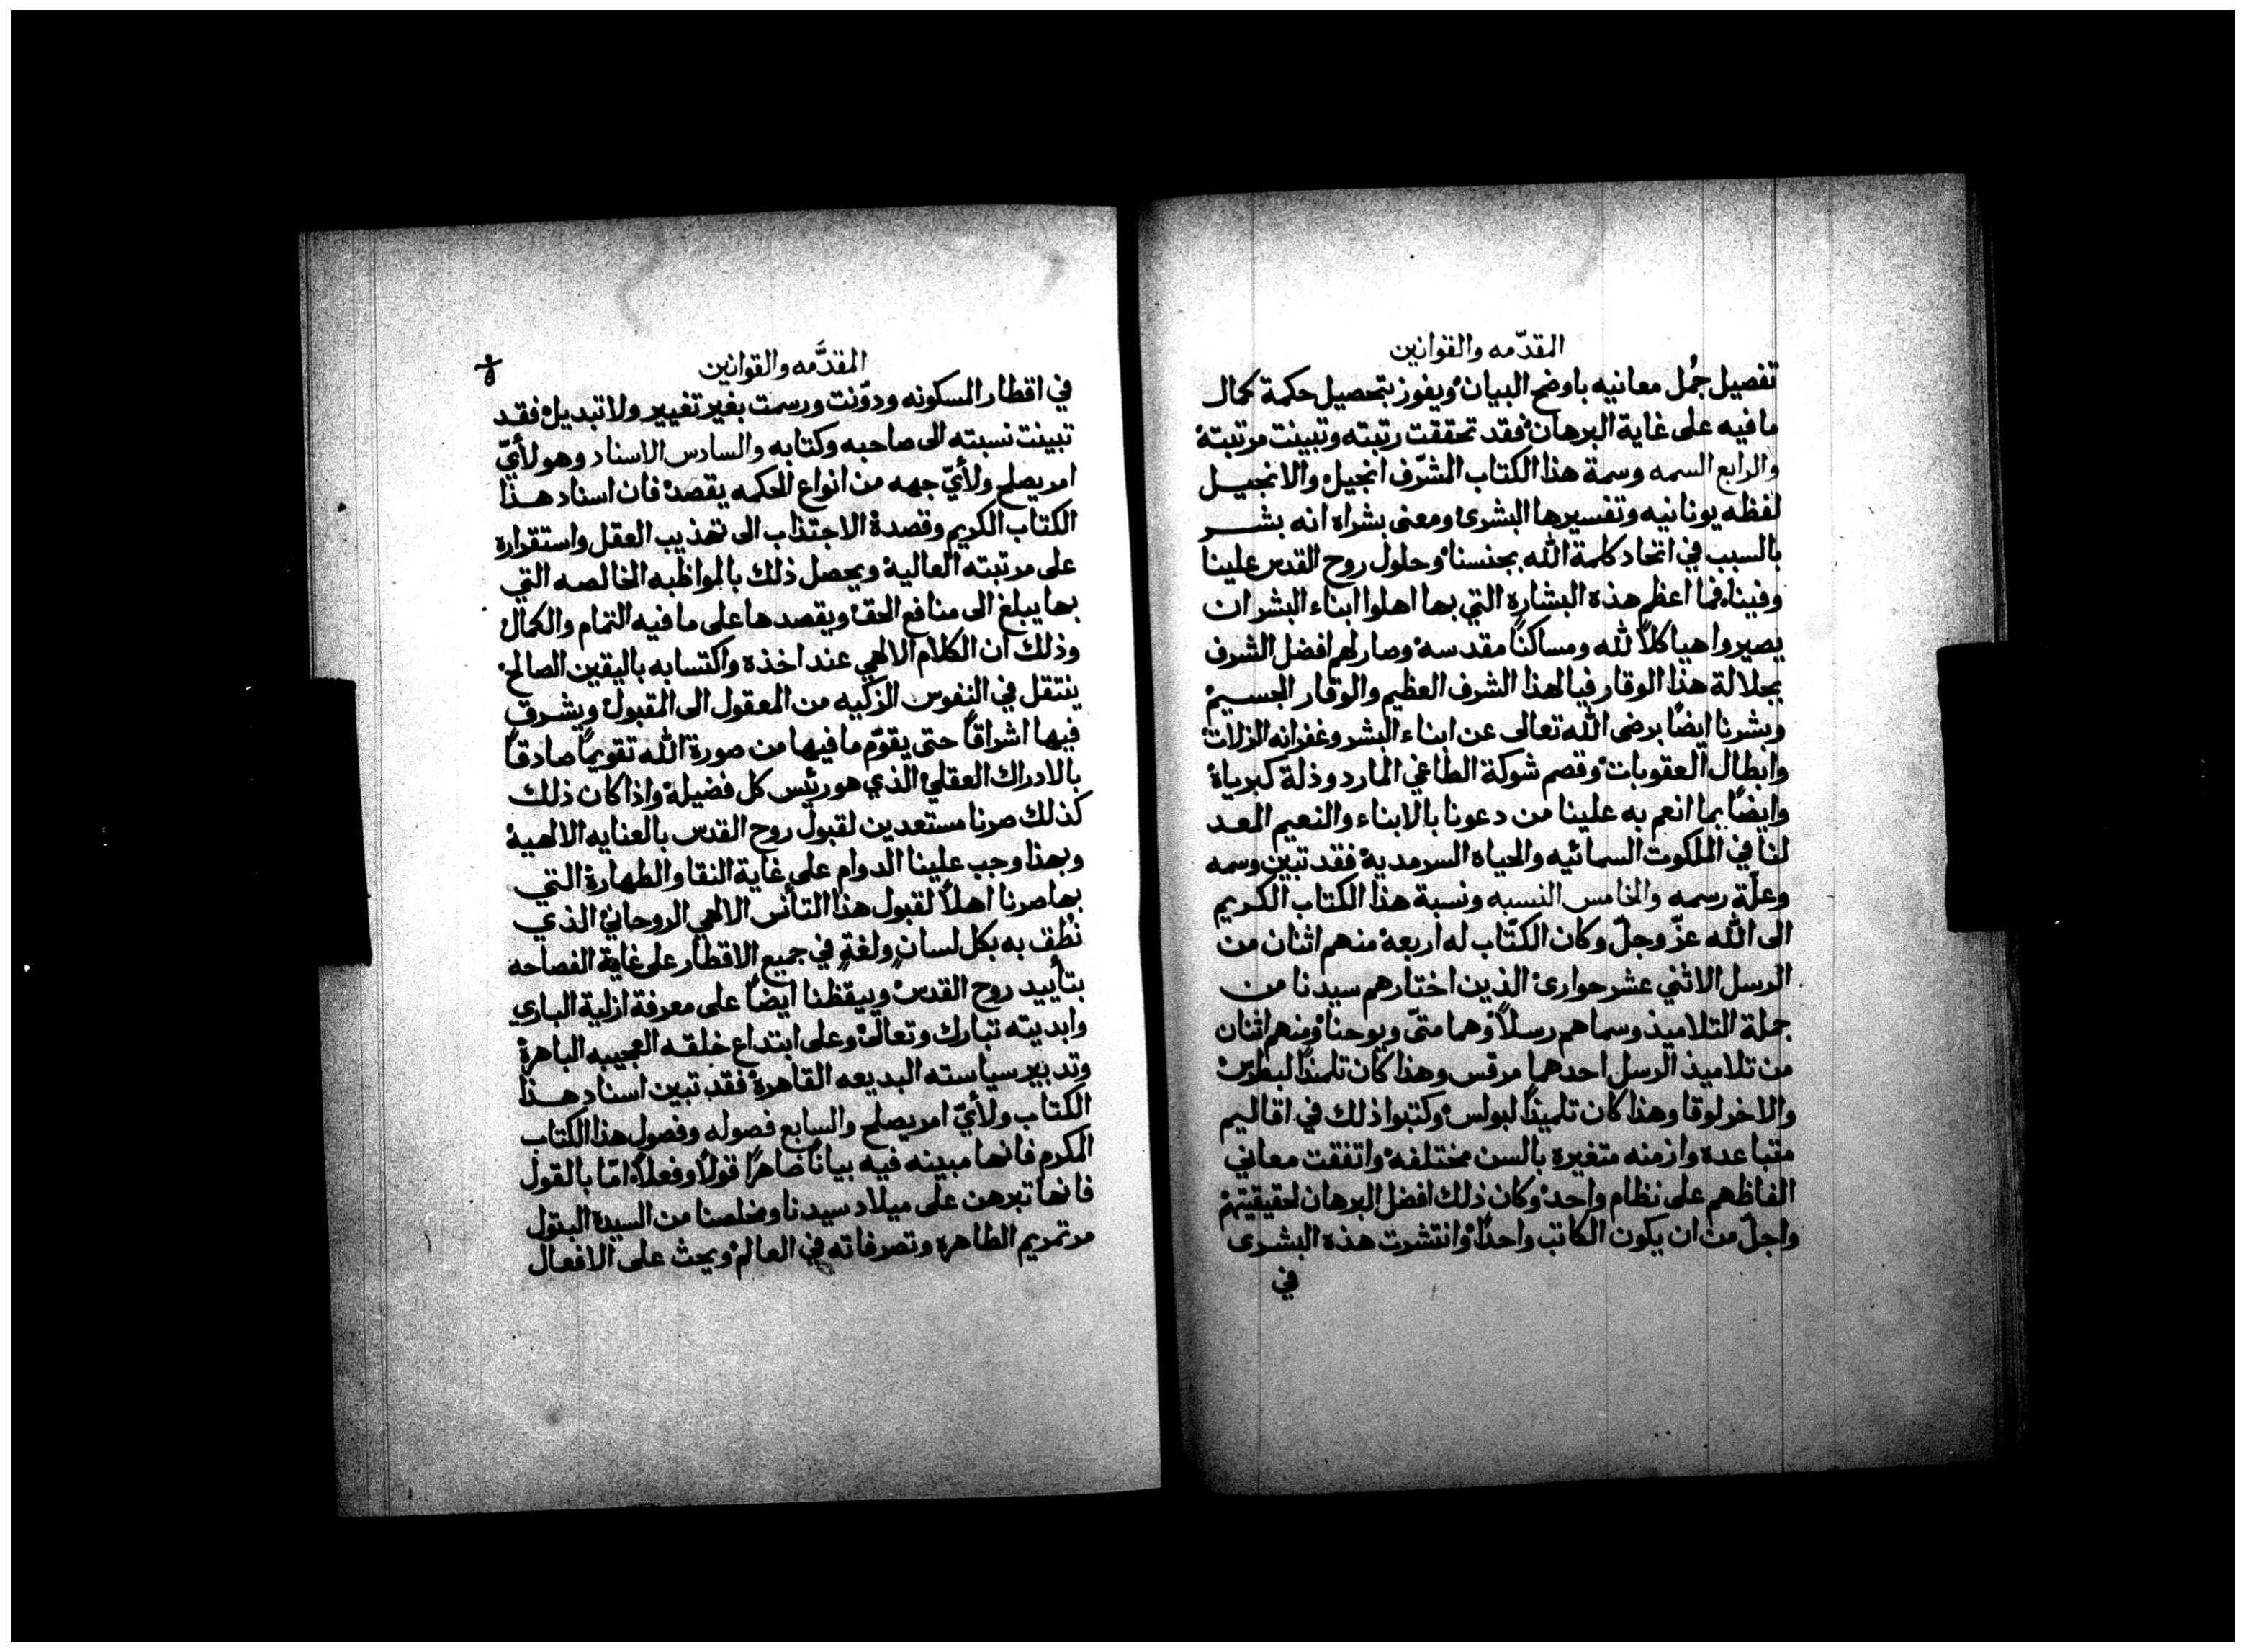 المقدّمه والقوانين
تفصيل جُمل معانيه باوضح البيان ويفوز بتحصيل حكمة كمال
ما فيه على غاية البرهان فقد تحققت رتبته وتبينت مرتبته
والرابع السمه وسمة هذا الكتاب المشرّف انجيل والانجيل
لفظه يونانيه وتفسيرها البشرى ومعنى بشراه انه بشر
بالسبب في اتحاد كلمة الله بجنسنا وحلول روح القدس علينا
وفينا فما اعظم هذه البشاره التي بها اهلوا ابناء البشر ان
يصيروا هياكلاً لله ومساكنًا مقدسه وصار لهم افضل الشرف
بجلالة هذا الوقار فيا لهذا الشرف العظيم والوقار الجسيم
وبشرنا ايضًا برضى الله تعالى عن ابناء البشر وغفرانه الزلات
وابطال العقوبات وقصم شوكة الطاغي المارد وذلة كبرياه
وايضًا بما انعم به علينا من دعونا بالابناء والنعيم المعد
لنا في الملكوت السمائيه والحياه السرمدية فقد تبين وسمه
وعلّة رسمه والخامس النسبه ونسبة هذا الكتاب الكريم
الى الله عزّ وجلّ وكان الكتّاب له اربعه منهم اثنان من
الرسل الاثني عشر حوارى الذين اختارهم سيدنا من
جملة التلاميذ وسماهم رسلاً وهما متّى ويوحنا ومنهم اثنان
من تلاميذ الرسل احدهما مرقس وهذا كان تلميذًا لبطرس
والاخر لوقا وهذا كان تلميذًا لبولس وكتبوا ذلك في اقاليم
متباعده وازمنه متغيره بالسن مختلفه واتفقت معاني
الفاظهم على نظام واحد وكان ذلك افضل البرهان لحقيقيتهم
واجلّ من ان يكون الكاتب واحدًا وانتشرت هذه البشرى
في
المقدّمه والقوانين
في اقطار المسكونه ودوّنت ورسمت بغير تغيير ولا تبديل فقد
تبينت نسبته الى صاحبه وكتابه والسادس الاسناد وهو لأيّ
امر يصلح ولأيّ جهه من انواع الحكمه يقصد فان اسناد هذا
الكتاب الكريم وقصده الاجتذاب الى تهذيب العقل واستقراره
على مرتبته العالية ويحصل ذلك بالمواظبه الخالصه التي
بها يبلغ الى منافع الحق ويقصدها على ما فيه التمام والكمال
وذلك ان الكلام الالهي عند اخذه واكتسابه باليقين الصالح
ينتقل في النفوس الزكيه من المعقول الى المقبول ويشرق
فيها اشراقًا حتى يقوّم ما فيها من صورة الله تقويمًا صادقًا
بالادراك العقلي الذي هو رئيس كل فضيلة واذا كان ذلك
كذلك صرنا مستعدين لقبول روح القدس بالعنايه الالهية
وبهذا وجب علينا الدوام على غاية النقا والطهارة التي
بها صرنا اهلاً لقبول هذا التأنس الالهي الروحاني الذي
نُطق به بكل لسان ولغةٍ في جميع الاقطار على غاية الفصاحه
بتأييد روح القدس وييقظنا ايضًا على معرفة ازلية الباري
وابديته تبارك وتعالى وعلى ابتداع خلقه العجيبه الباهرة
وتدبير سياسته البديعه القاهرة فقد تبين اسناد هذا
الكتاب ولأيّ امر يصلح والسابع فصوله وفصول هذا الكتاب
المكرم فانها مبينه فيه بيانًا ظاهرًا قولاً وفعلاً امّا بالقول
فانها تبرهن على ميلاد سيدنا ومخلصنا من السيدة البتول
مرتمريم الطاهره وتصرفاته في العالم ويحث على الافعال